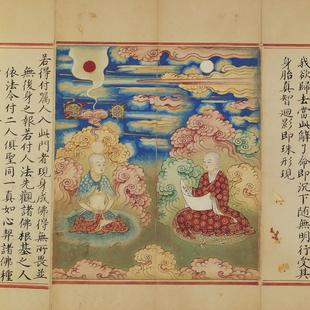 我欲歸去當此解了命即沉下随無明行受其
身胎真智迴影即珠形現
若得付囑人入此門者現身成佛得無所畏並
無後身之報若付人法先觀諸佛根基之人
依法令付二人俱聖同一真如心契諸佛種